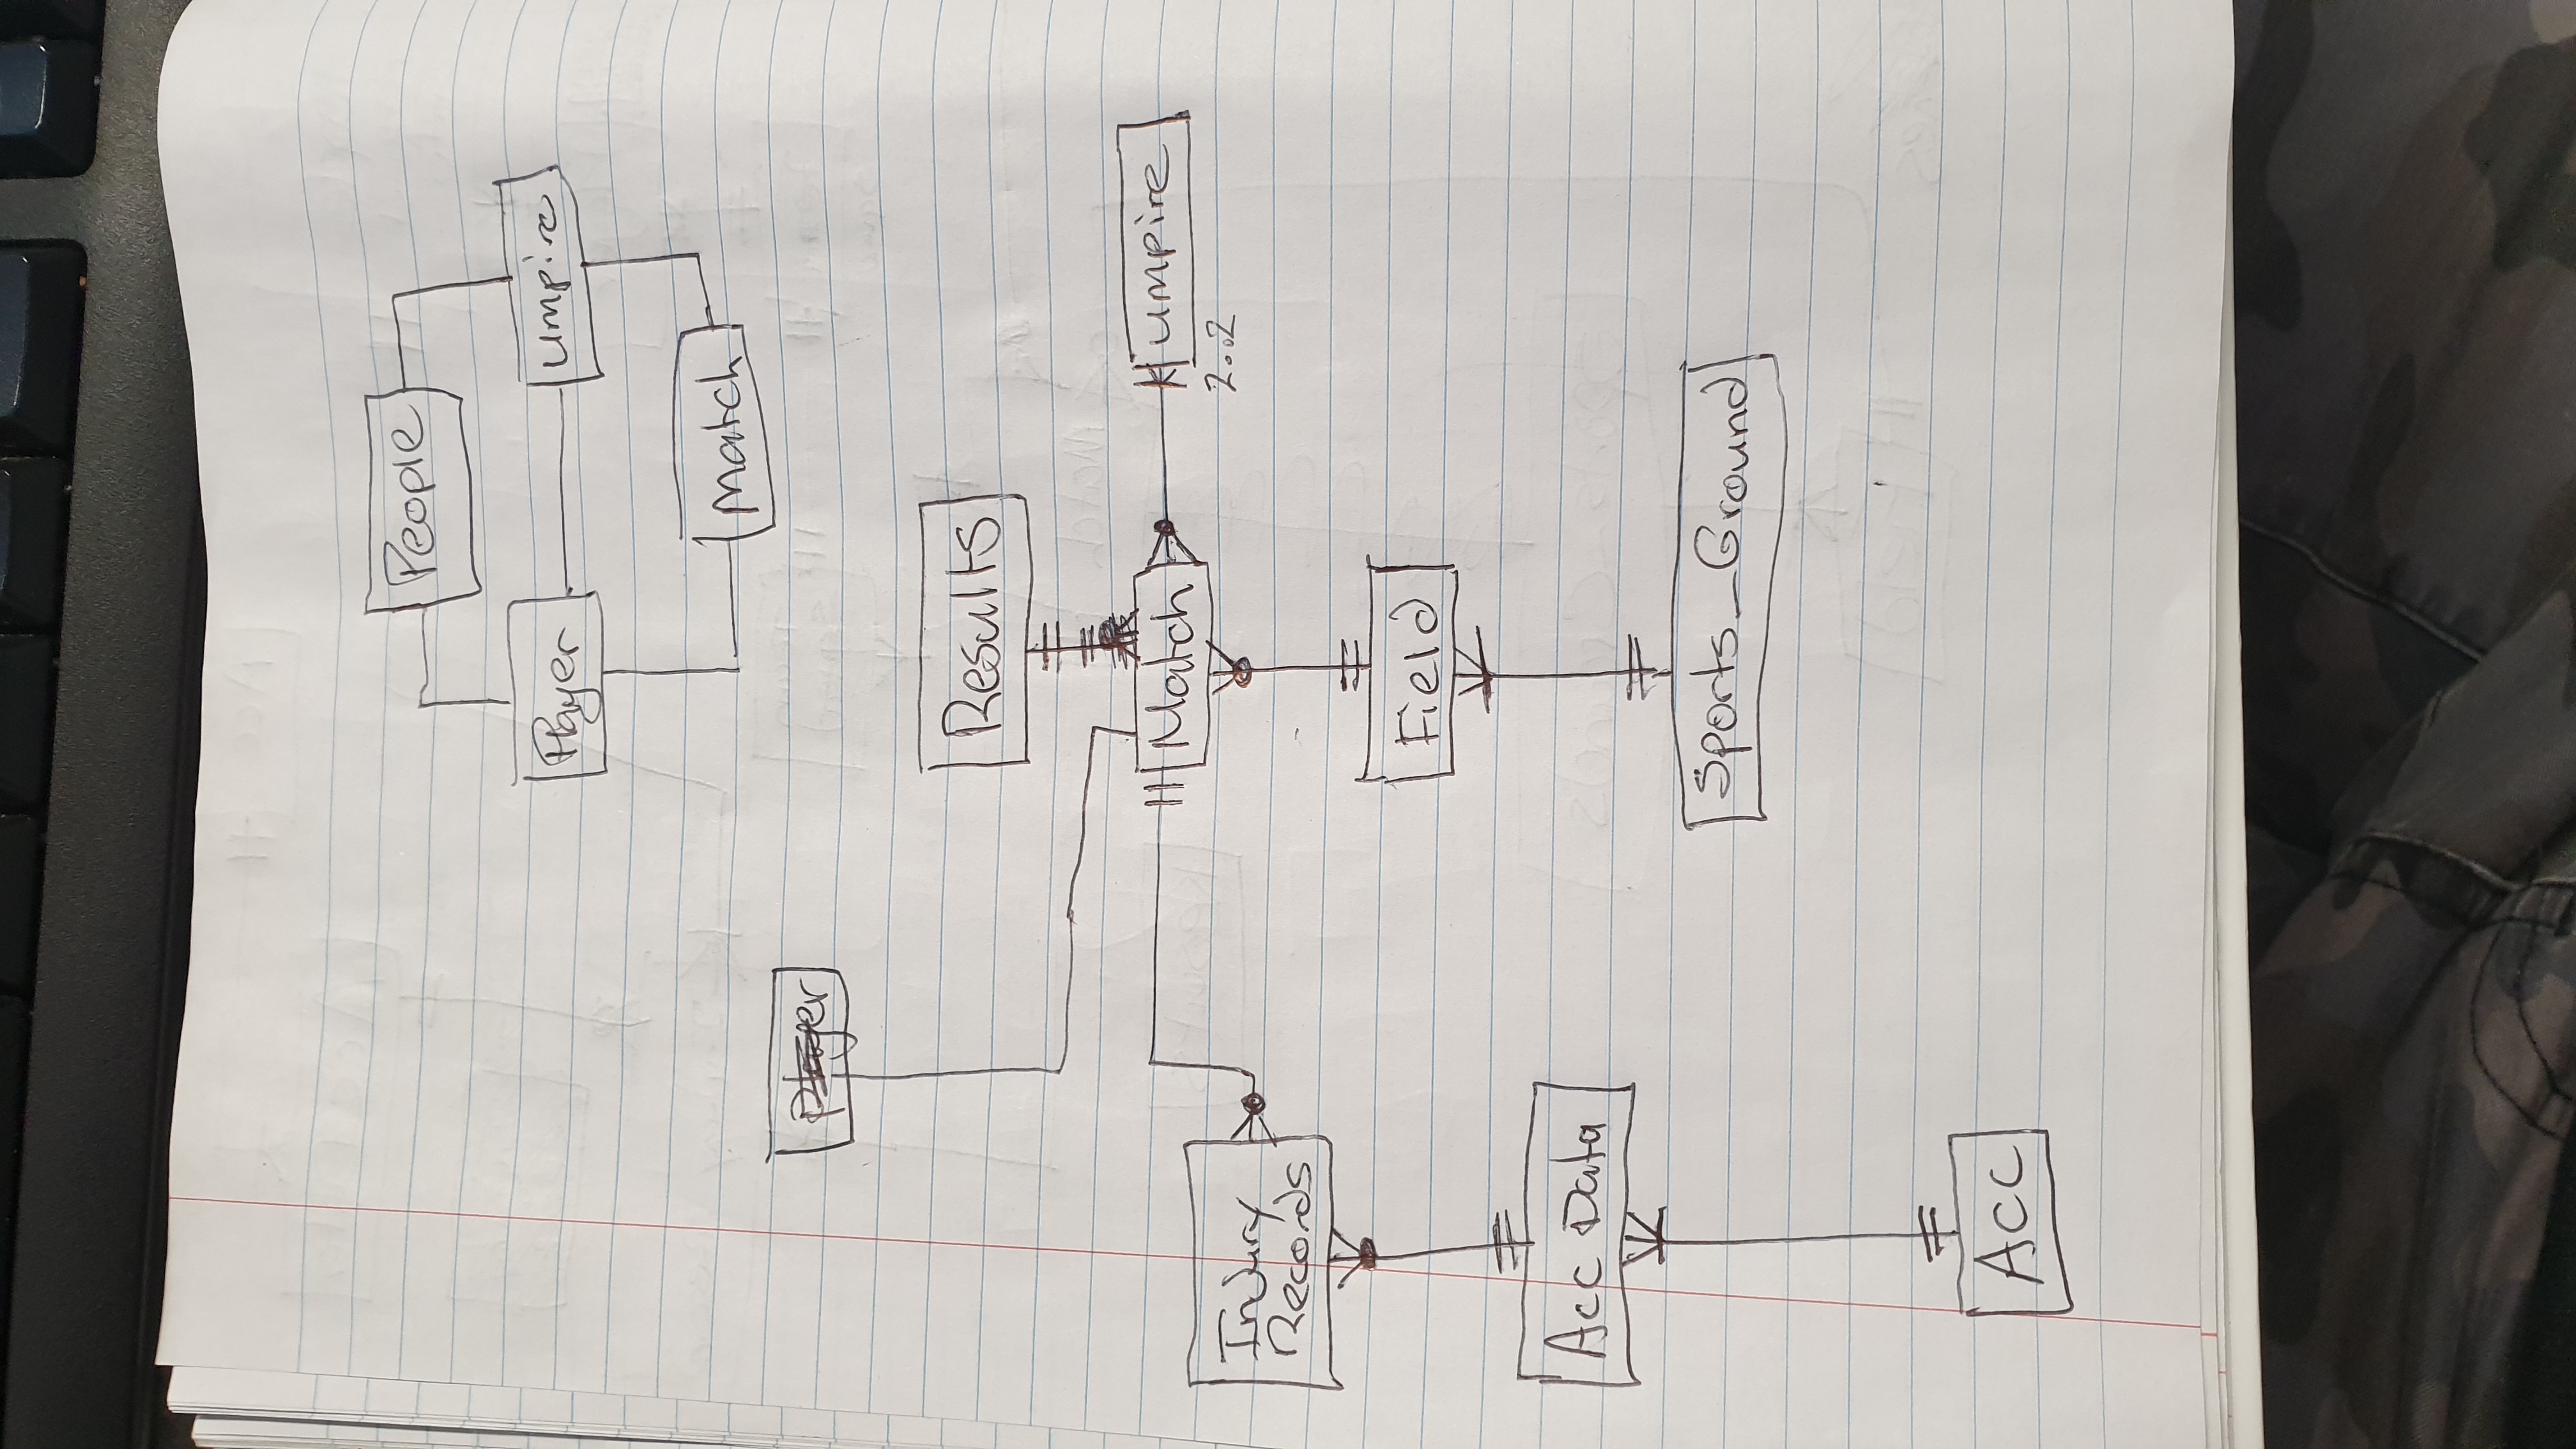 People
Player
umpire
Match
Player
Results
Match
umpire
2..2
Injury
Records
Field
Acc Data
Sports_Ground
Acc